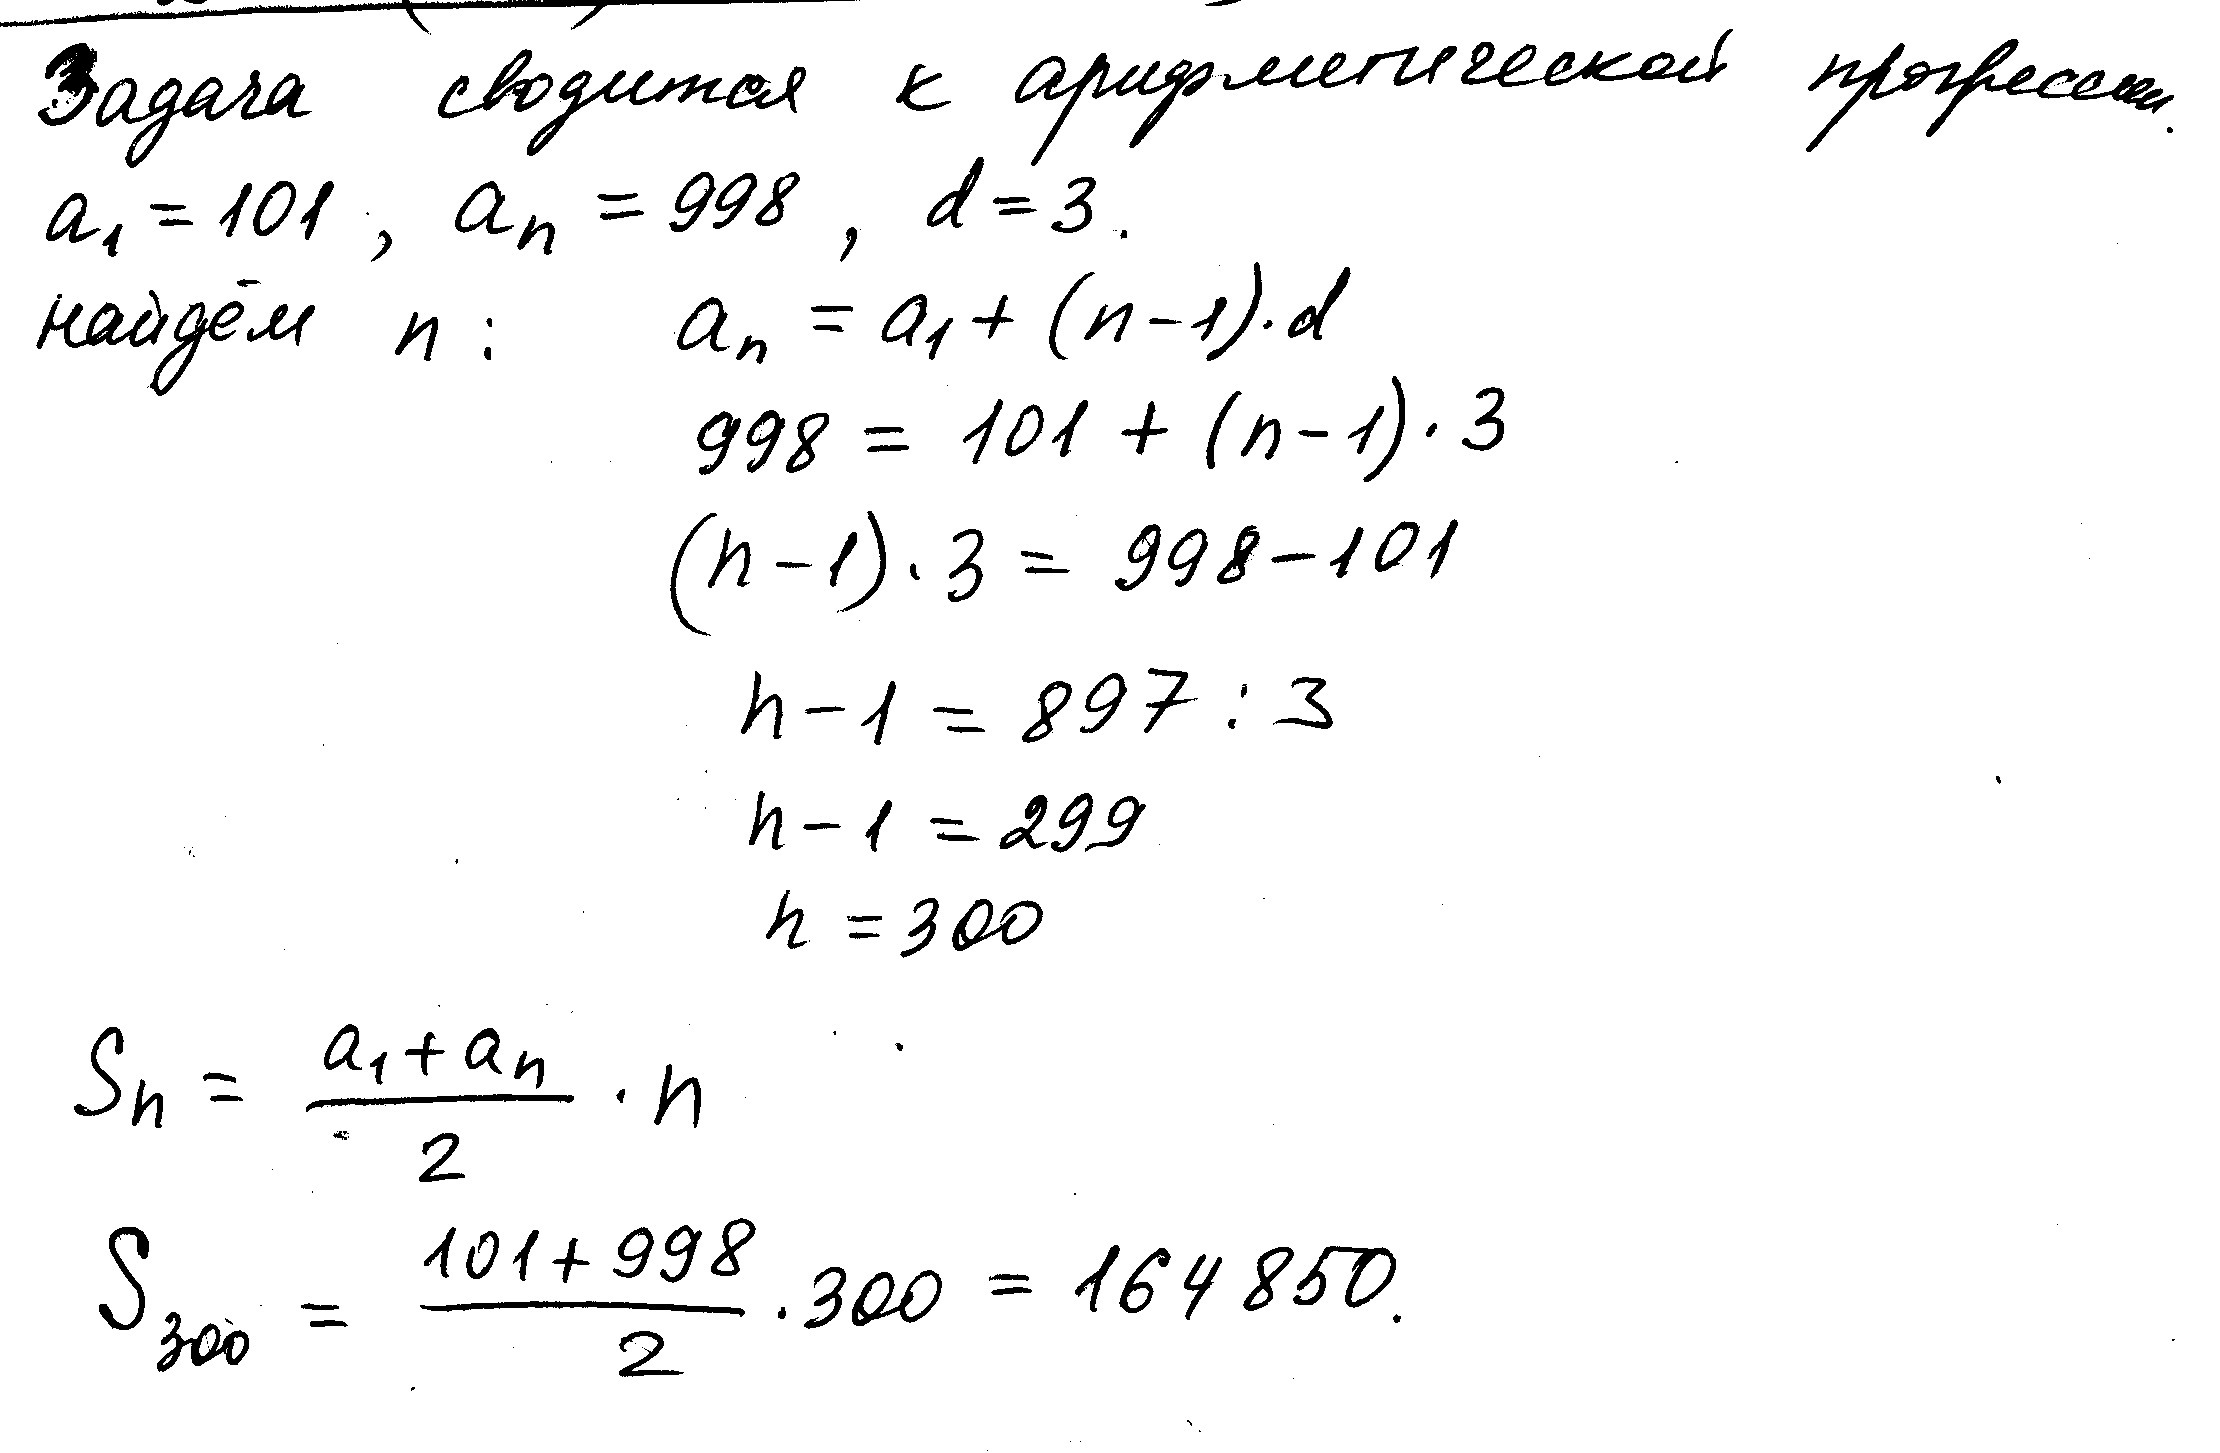 Задача сводится к арифметической прогрессии.
a₁ = 101, aₙ = 998, d = 3.
найдём n: aₙ = a₁ + (n-1)·d
998 = 101 + (n-1)·3
(n-1)·3 = 998-101
n-1 = 897 : 3
n-1 = 299
n = 300
Sₙ = (a₁ + aₙ)/2 · n
S₃₀₀ = (101+998)/2 · 300 = 164 850.